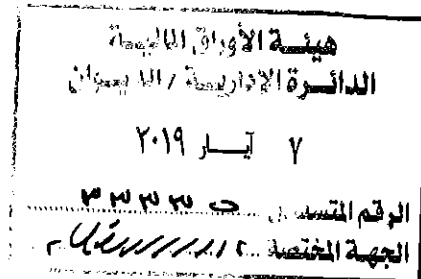 هيئة الأوراق المالية
الدائرة الإدارية / الديوان
٧ أيار ٢٠١٩
الرقم المتسلسل
الجهة المختصة